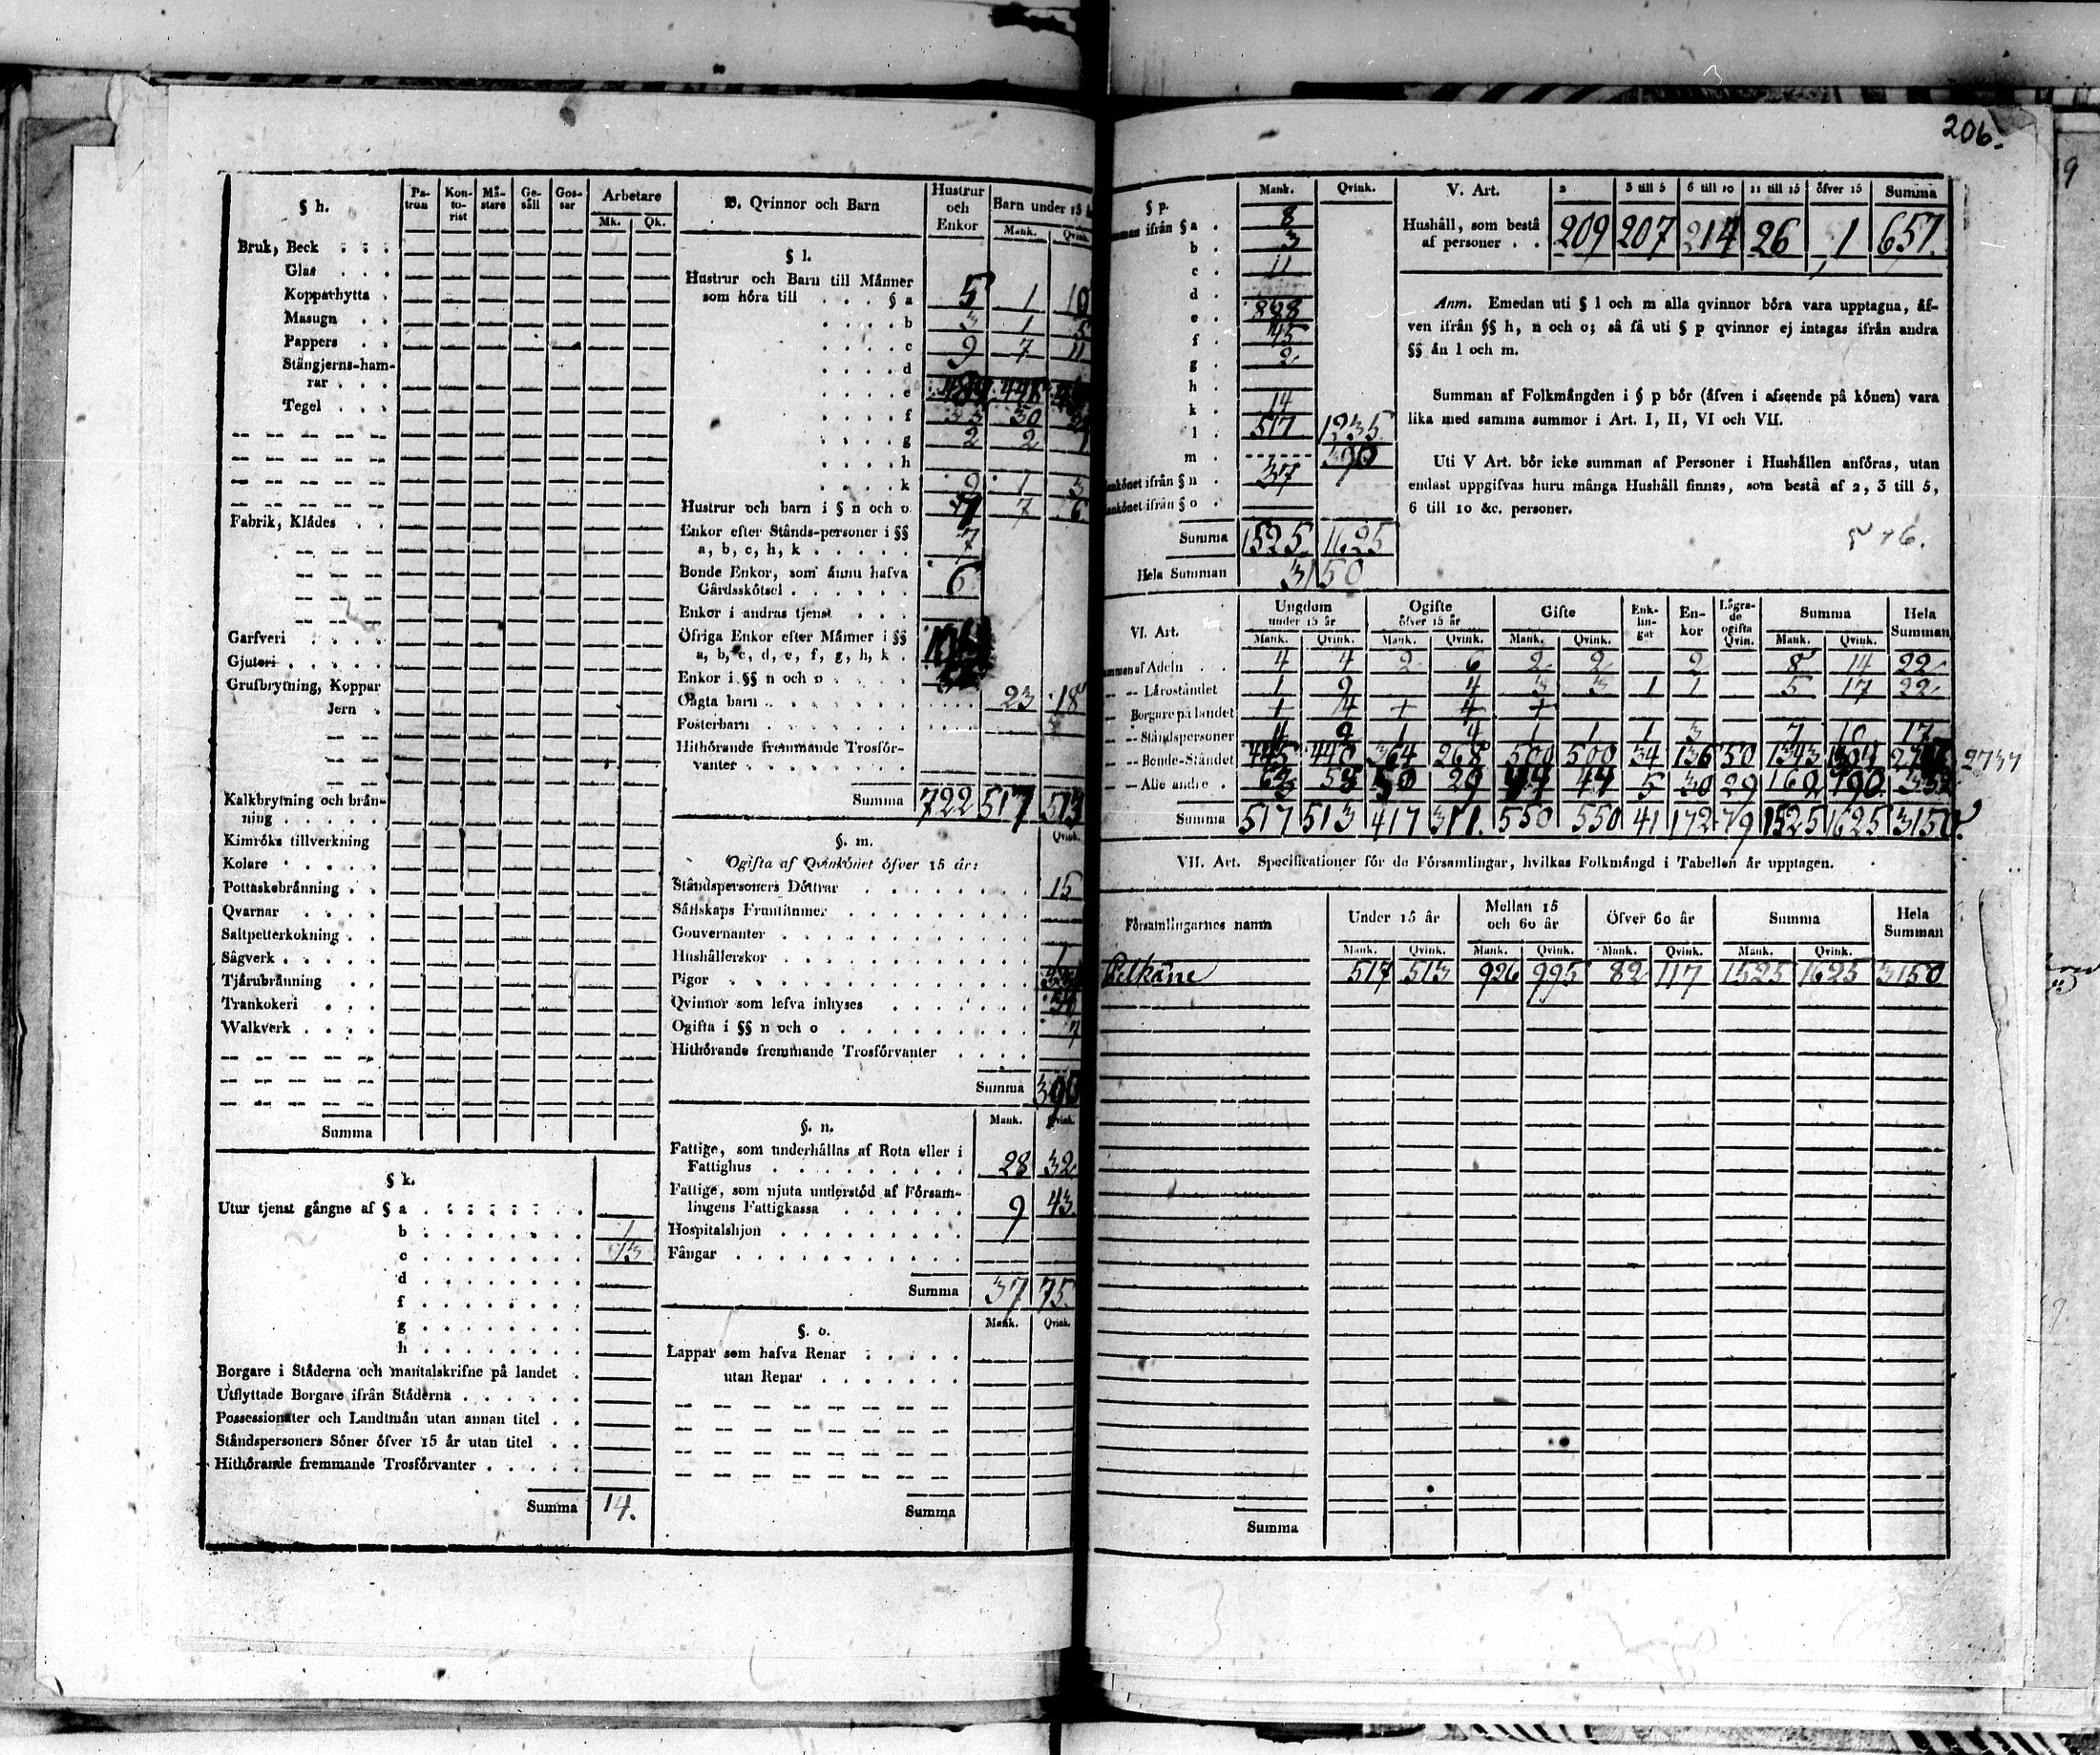 206.
§ h.
Patron Kontorist Mästare Gesäll Gossar Arbetare
Mk. Qk.
Bruk, Beck
Glas
Kopparhytta
Masugn
Pappers
Stångjerns-hamrar
Tegel
Fabrik, Klädes
Garfveri
Gjuteri
Grufbrytning, Koppar
Jern
Kalkbrytning och bränning
Kimröks tillverkning
Kolare
Pottaskebränning
Qvarnar
Saltpetterkokning
Sågverk
Tjärubränning
Trankokeri
Walkverk
Summa
§ k.
Utur tjenst gångne af § a
b 1
c 13
d
f
g
h
Borgare i Städerna och mantalskrifne på landet
Utflyttade Borgare ifrån Städerna
Possessionater och Landtmän utan annan titel
Ståndspersoners Söner öfver 15 år utan titel
Hithörande fremmande Trosförvanter
Summa 14.
B. Qvinnor och Barn
Hustrur och Enkor
Barn under 15
Mank. Qvink.
§ l.
Hustrur och Barn till Männer
som höra till § a 5 1 10
b 3 1 5
c 9 7 11
d
e
f 33 30
g 2 2 1
h
k 9 1 3
Hustrur och barn i § n och o 7 6
Enkor efter Stånds-personer i §§
a, b, c, h, k 7
Bonde Enkor, som ännu hafva
Gårdsskötsel 6
Enkor i andras tjenst
Öfriga Enkor efter Männer i §§
a, b, c, d, e, f, g, h, k
Enkor i §§ n och o
Oägta barn 23 18
Fosterbarn
Hithörande fremmande Trosförvanter
Summa 722 517 513
§. m.
Qvink.
Ogifta af Qvinkönet öfver 15 år:
Ståndspersoners Döttrar 15
Sällskaps Fruntimmer
Gouvernanter
Hushållerskor 1
Pigor
Qvinnor som lefva inhyses
Ogifta i §§ n och o 7
Hithörande fremmande Trosförvanter
Summa 390
§. n.
Mank. Qvink.
Fattige, som underhållas af Rota eller i
Fattighus 28 32
Fattige, som njuta understöd af Församlingens Fattigkassa 9 43.
Hospitalshjon
Fångar
Summa 37 75.
§. o.
Mank. Qvink.
Lappar som hafva Renar
utan Renar
Summa
§ p.
Mank. Qvink.
ifrån § a 8
b 3
c 11
d
e 888
f 45
g 2
h
k 14
l 517 1235
m 390
ifrån § n 37
ifrån § o
Summa 1525 1625
Hela Summan 3150
V. Art. 2 3 till 5 6 till 10 11 till 15 öfver 15 Summa
Hushåll, som bestå
af personer 209 207 214 26 1 657.
Anm. Emedan uti § l och m alla qvinnor böra vara upptagna, äfven ifrån §§ h, n och o; så få uti § p qvinnor ej intagas ifrån andra
§§ än l och m.
Summan af Folkmängden i § p bör (äfven i afseende på könen) vara
lika med samma summor i Art. I, II, VI och VII.
Uti V Art. bör icke summan af Personer i Hushållen anföras, utan
endast uppgifvas huru många Hushåll finnas, som bestå af 2, 3 till 5,
6 till 10 &c. personer.
VI. Art.
Ungdom under 15 år Ogifte öfver 15 år Gifte Enklingar Enkor Lägrade ogifta Qvin. Summa Hela Summan
Mank. Qvink. Mank. Qvink. Mank. Qvink. Mank. Qvink.
af Adeln 4 4 2 6 2 2 2 8 14 22
Läroståndet 1 9 4 3 3 1 1 5 17 22
Borgare på landet
Ståndspersoner 4 2 1 4 1 1 1 3 7 10 17
Bonde-Ståndet 445 440 364 268 500 500 34 136 50 1343 2737
Alle andre 29 44 5 30 29 162 190
Summa 517 513 417 311. 550 550 41 172 79 1525 1625 3150.
VII. Art. Specificationer för de Församlingar, hvilkas Folkmängd i Tabellen är upptagen.
Församlingarnes namn Under 15 år Mellan 15 och 60 år Öfver 60 år Summa Hela Summan
Mank. Qvink. Mank. Qvink. Mank. Qvink. Mank. Qvink.
Pelkäne 517 513 926 995 82 117 1525 1625 3150
Summa